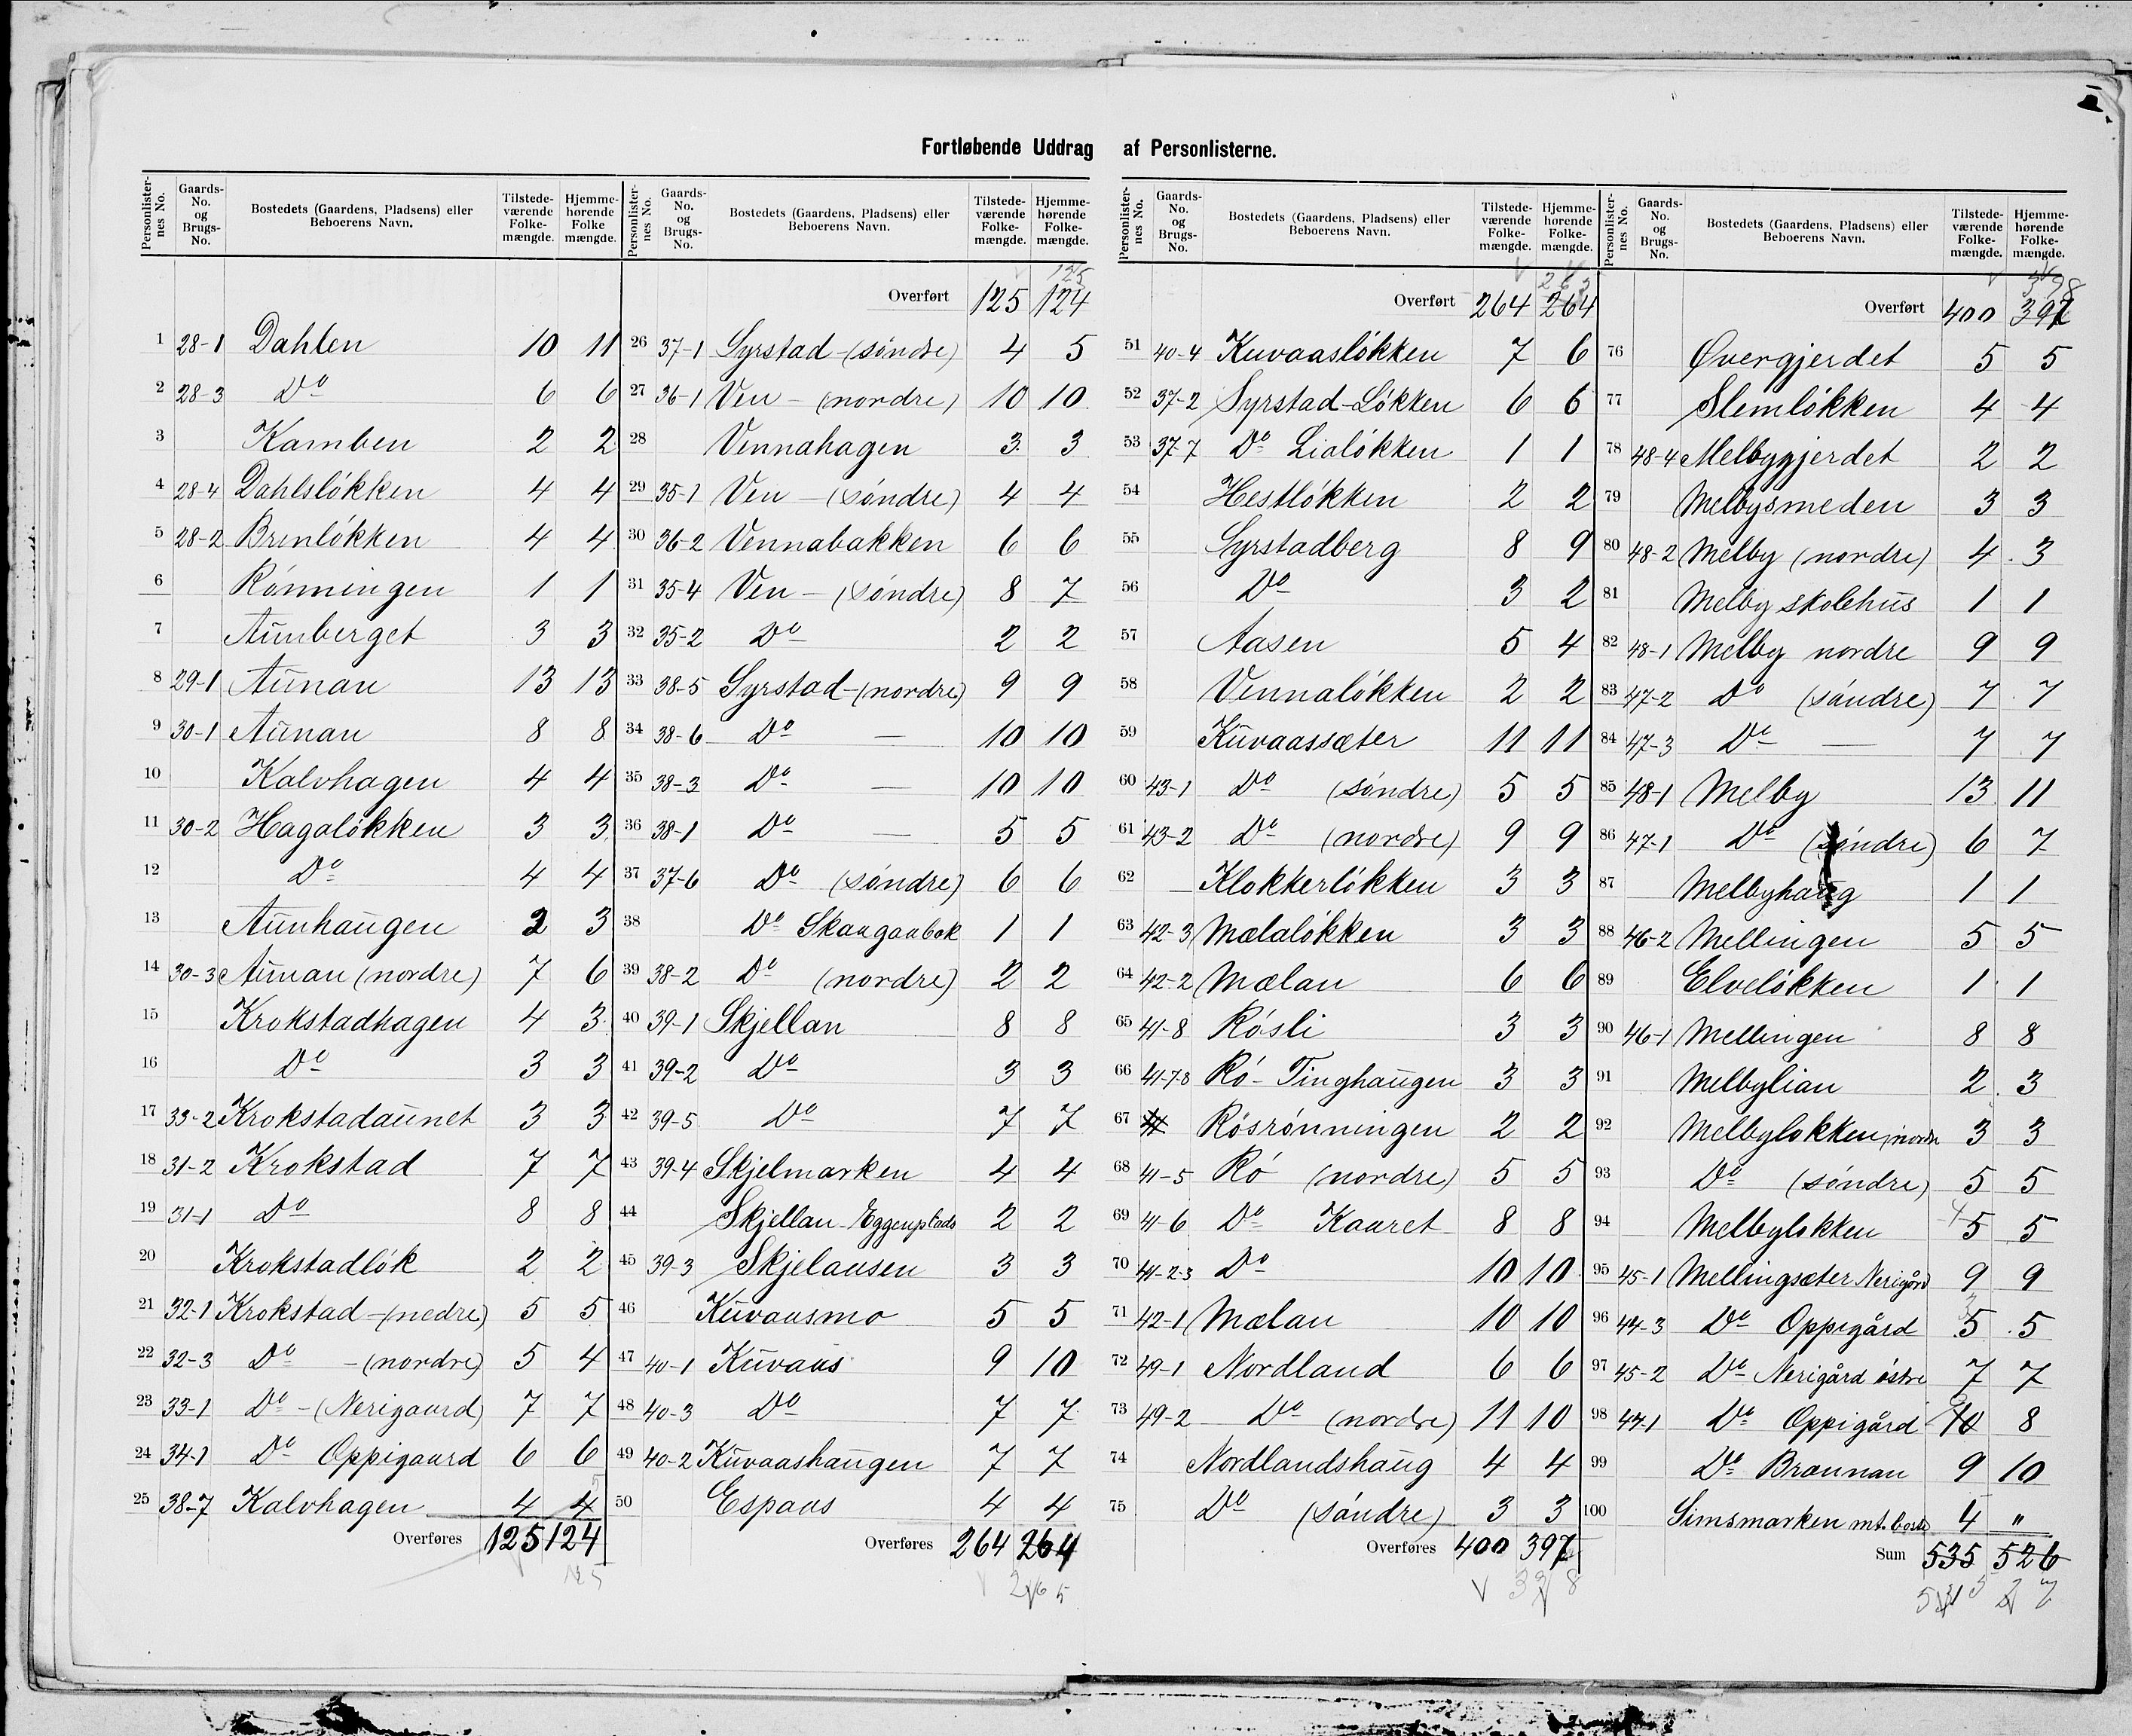 Fortløbende Uddrag af Personlisterne.
Personlister-nes No. Gaards-No. og Brugs-No. Bostedets (Gaardens, Pladsens) eller Beboerens Navn. Tilstede-værende Folke-mængde. Hjemme-hørende Folke mængde.
1 28-1 Dahlen 10 11
2 28-3 Do 6 6
3 Kamben 2 2
4 28-4 Dahlsløkken 4 4
5 28-2 Brenløkken 4 4
6 Rønningen 1 1
7 Aunberget 3 3
8 29-1 Aunan 13 13
9 30-1 Aunan 8 8
10 Kalvhagen 4 4
11 30-2 Hagaløkken 3 3
12 Do 4 4
13 Aunhaugen 2 3
14 30-3 Aunan (nordre) 7 6
15 Krokstadhagen 4 3
16 Do 3 3
17 33-2 Krokstadaunet 3 3
18 31-2 Krokstad 7 7
19 31-1 Do 8 8
20 Krokstadløk 2 2
21 32-1 Krokstad - (nedre) 5 5
22 32-3 Do - (nordre) 5 4
23 33-1 Do - (Nerigaard) 7 7
24 34-1 Do Oppigaard 6 6
25 38-7 Kalvhagen 4 4 5
Overføres 125 124
125
Personlister-nes No. Gaards-No. og Brugs-No. Bostedets (Gaardens, Pladsens) eller Beboerens Navn. Tilstede-værende Folke-mængde. Hjemme-hørende Folke-mængde.
125
Overført 125 124
26 37-1 Syrstad - (søndre) 4 5
27 36-1 Ven - (nordre) 10 10
28 Vennahagen 3 3
29 35-1 Ven - (søndre) 4 4
30 36-2 Vennabakken 6 6
31 35-4 Ven - (søndre) 8 7
32 35-2 Do 2 2
33 38-5 Syrstad - (nordre) 9 9
34 38-6 Do — 10 10
35 38-3 Do — 10 10
36 38-1 Do — 5 5
37 37-6 Do (søndre) 6 6
38 Do Skaugaabak 1 1
39 38-2 Do (nordre) 2 2
40 39-1 Skjellan 8 8
41 39-2 Do 3 3
42 39-5 Do 7 7
43 39-4 Skjelmarken 4 4
44 Skjellan - Eggenplads 2 2
45 39-3 Skjelausen 3 3
46 Kuvaasmo 5 5
47 40-1 Kuvaas 9 10
48 40-3 Do 7 7
49 40-2 Kuvaashaugen 7 7
50 Espaas 4 4
Overføres 264 264
265
Personlister-nes No. Gaards-No. og Brugs-No. Bostedets (Gaardens, Pladsens) eller Beboerens Navn. Tilstede-værende Folke-mængde. Hjemme-hørende Folke-mængde.
265
Overført 264 264
51 40-4 Kuvaasløkken 7 6
52 37-2 Syrstad-Løkken 6 6
53 37-7 Do Lialøkken 1 1
54 Hestløkken 2 2
55 Syrstadberg 8 9
56 Do 3 2
57 Aasen 5 4
58 Vennaløkken 2 2
59 Kuvaassæter 11 11
60 43-1 Do (søndre) 5 5
61 43-2 Do (nordre) 9 9
62 Klokkerløkken 3 3
63 42-3 Mælaløkken 3 3
64 42-2 Mælan 6 6
65 41-8 Røsli 3 3
66 41-7-8 Rø - Tinghaugen 3 3
67 Røsrønningen 2 2
68 41-5 Rø (nordre) 5 5
69 41-6 Do Kaaret 8 8
70 41-2-3 Do 10 10
71 42-1 Mælan 10 10
72 49-1 Nordland 6 6
73 49-2 Do (nordre) 11 10
74 Nordlandshaug 4 4
75 Do (søndre) 3 3
Overføres 400 397
398
Personlister-nes No. Gaards-No. og Brugs-No. Bostedets (Gaardens, Pladsens) eller Beboerens Navn. Tilstede-værende Folke-mængde. Hjemme-hørende Folke-mængde.
398
Overført 400 397
76 Øvergjerdet 5 5
77 Slemløkken 4 4
78 48-4 Melbygjerdet 2 2
79 Melbysmeden 3 3
80 48-2 Melby (nordre) 4 3
81 Melby skolehus 1 1
82 48-1 Melby nordre 9 9
83 47-2 Do (søndre) 7 7
84 47-3 Do — 7 7
85 48-1 Melby 13 11
86 47-1 Do (søndre) 6 7
87 Melbyhaug 1 1
88 46-2 Mellingen 5 5
89 Elveløkken 1 1
90 46-1 Mellingen 8 8
91 Melbylian 2 3
92 Melbylokken nordr 3 3
93 Do (søndre) 5 5
94 Melbylokken 4 5 5
95 45-1 Mellingsæter Nerigård 9 9
96 44-3 Do Oppigård 5 5
97 45-2 Do Nerigård østre 7 7
98 44-1 Do Oppigård 10 8
99 Do Braunan 9 10
100 Simsmarken 4 "
Sum 535 526